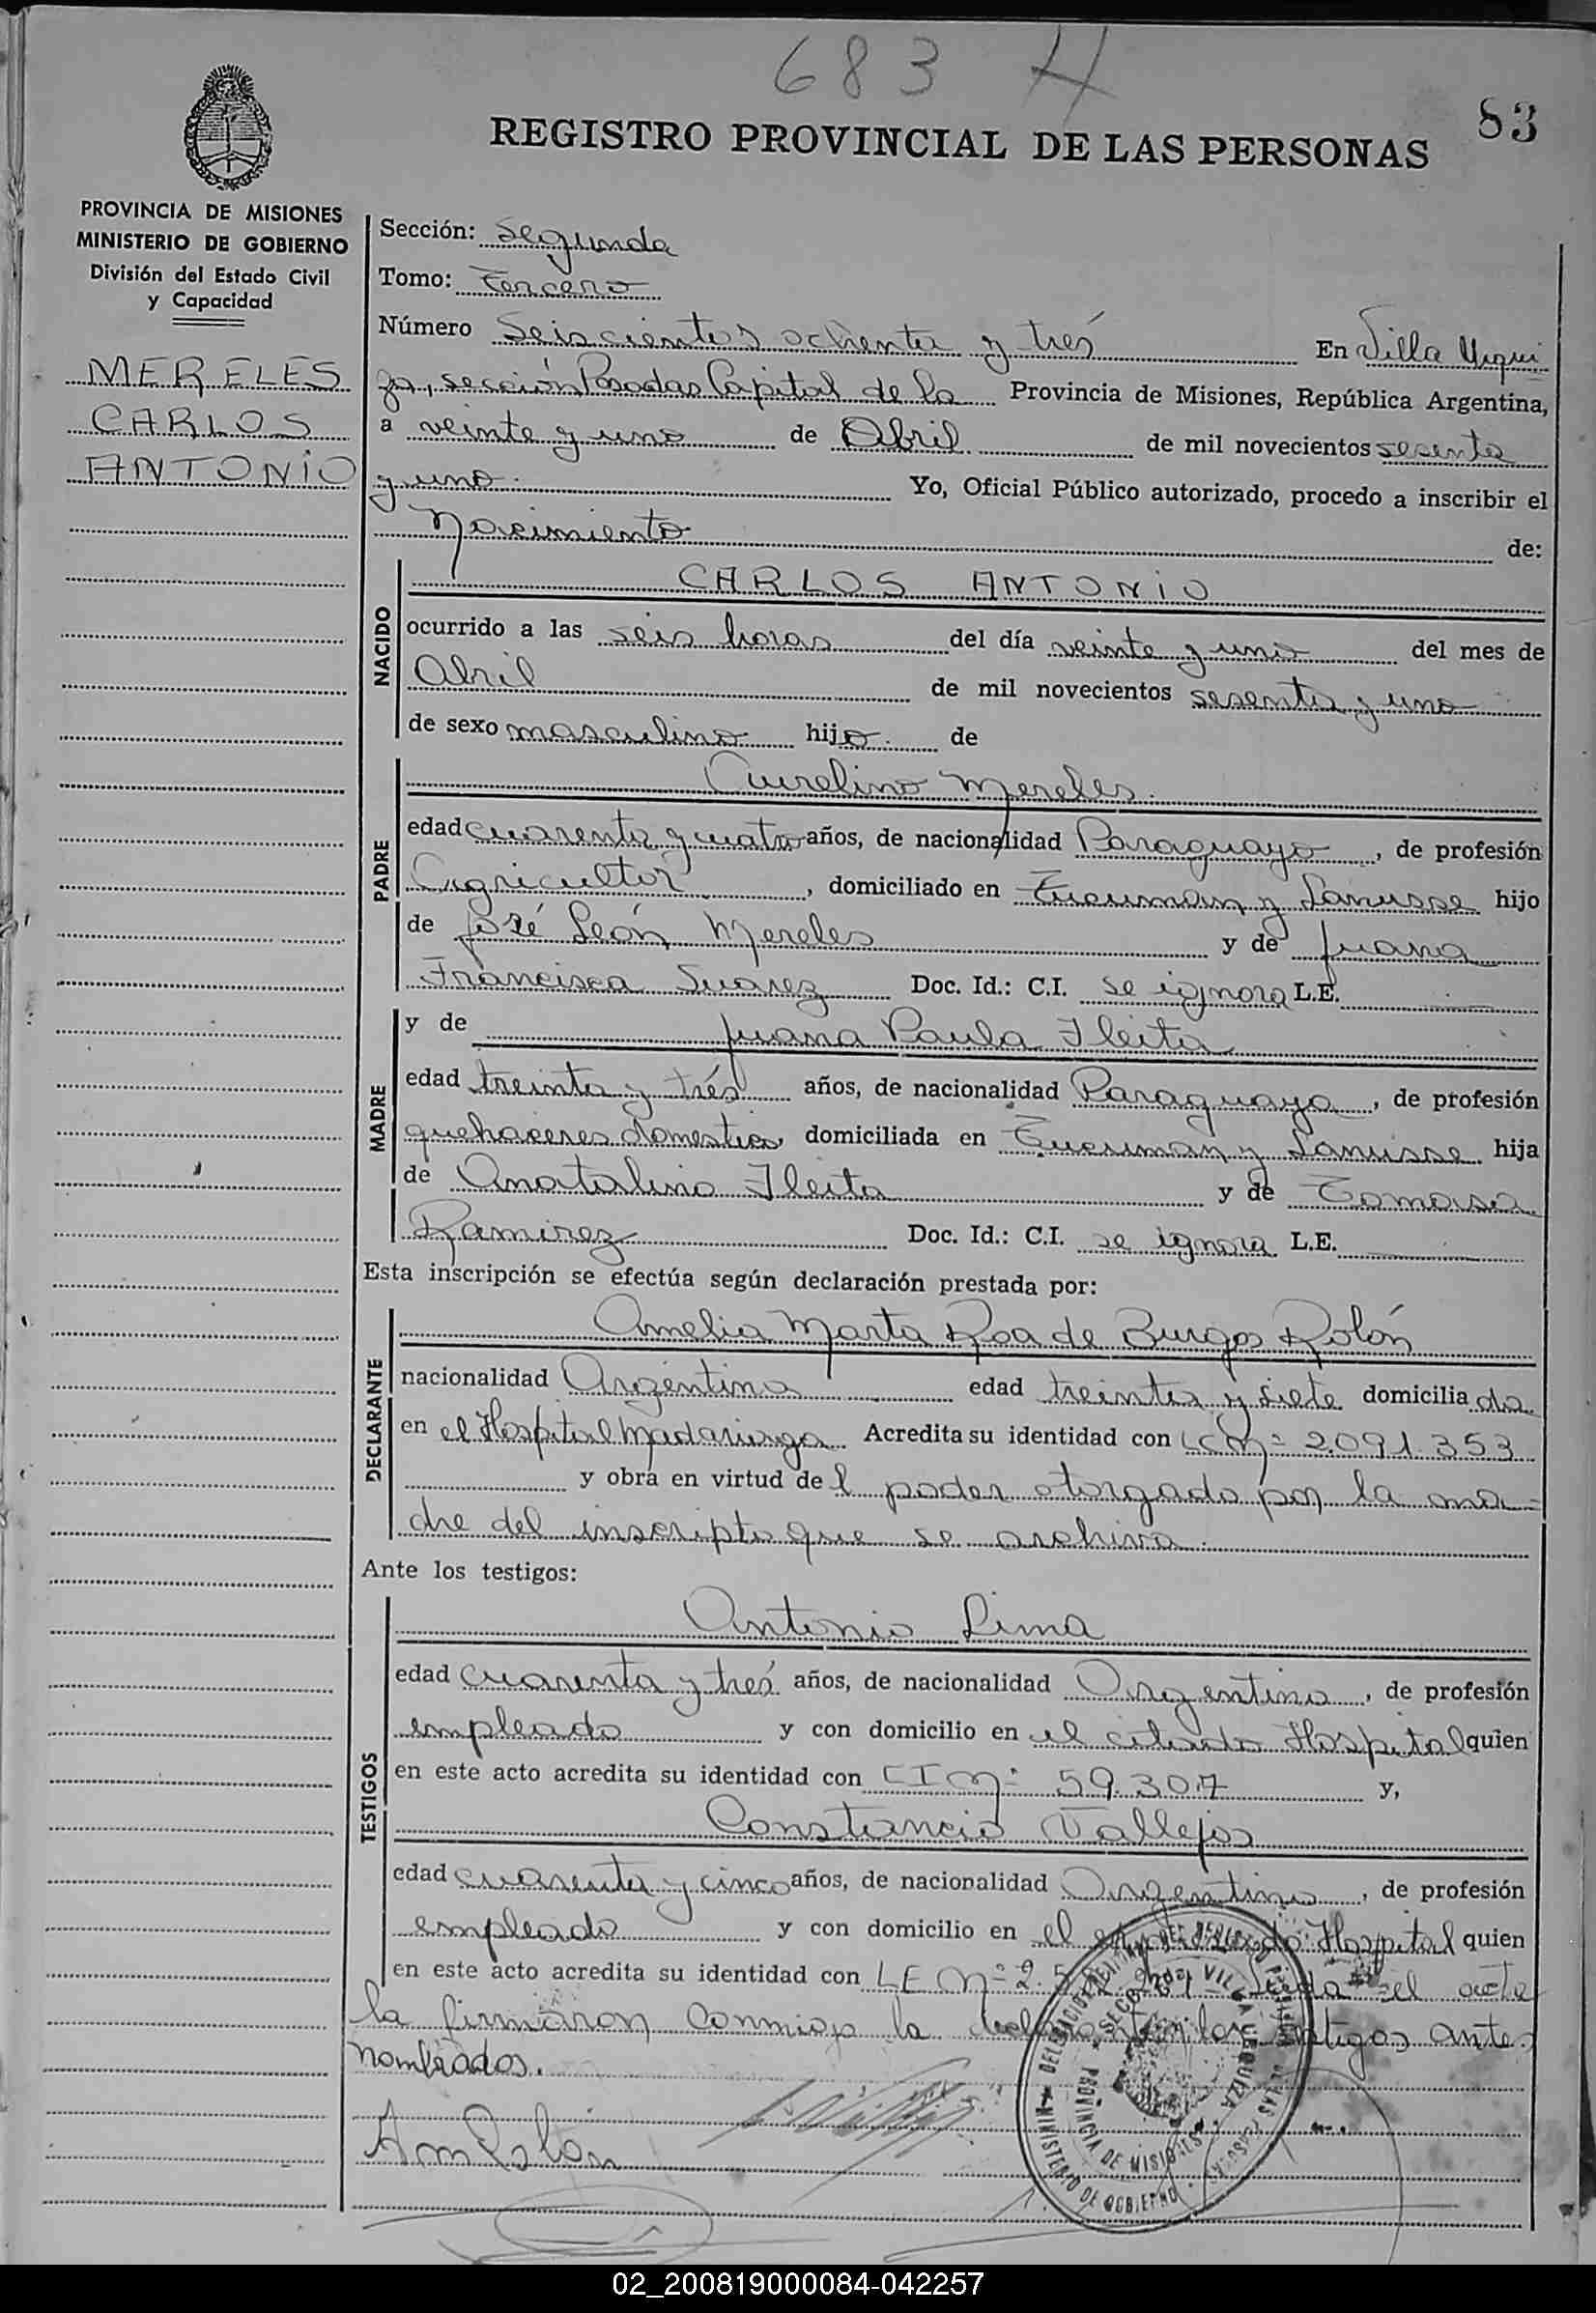 683 H
83
REGISTRO PROVINCIAL DE LAS PERSONAS
PROVINCIA DE MISIONES
MINISTERIO DE GOBIERNO
División del Estado Civil
y Capacidad
MERELES
CARLOS
ANTONIO
Sección: Segunda
Tomo: Tercero
Número Seiscientos ochenta y trés En Villa Urqui
za, sección Posadas Capital de la Provincia de Misiones, República Argentina,
a veinte y uno de Abril de mil novecientos sesenta
y uno. Yo, Oficial Público autorizado, procedo a inscribir el
Nacimiento de:
NACIDO
CARLOS ANTONIO
ocurrido a las seis horas del día veinte y uno del mes de
Abril de mil novecientos sesenta y uno
de sexo masculino hijo de
PADRE
Aurelino Mereles.
edad cuarenta y cuatro años, de nacionalidad Paraguayo, de profesión
Agricultor, domiciliado en Tucuman y Lanusse hijo
de José León Mereles y de Juana
Francisca Suarez Doc. Id.: C.I. se ignora L.E.
MADRE
y de Juana Paula Ileita
edad treinta y trés años, de nacionalidad Paraguaya, de profesión
quehaceres domesticos domiciliada en Tucuman y Lanusse hija
de Anatalino Ileita y de Tomasa
Ramirez Doc. Id.: C.I. se ignora L.E.
Esta inscripción se efectúa según declaración prestada por:
DECLARANTE
Amelia Marta Roa de Burgos Rolón
nacionalidad Argentina edad treinta y siete domiciliada
en el Hospital Madariaga Acredita su identidad con LC Nº 2.091.353
y obra en virtud del poder otorgado por la ma=
dre del inscripto que se archiva.
Ante los testigos:
TESTIGOS
Antonio Lima
edad cuarenta y trés años, de nacionalidad Argentino, de profesión
empleado y con domicilio en el citado Hospital quien
en este acto acredita su identidad con CI Nº 59.307 y,
Constancio Vallejos
edad cuarenta y cinco años, de nacionalidad Argentino, de profesión
empleado y con domicilio en el Hospital quien
en este acto acredita su identidad con LE Nº 2.5 Leida el acta
la firmaron conmigo la los testigos ante
nombrados.
AmRolón
MINISTERIO DE GOBIERNO
PROVINCIA DE MISIONES
VILLA URQUIZA
02_200819000084-042257